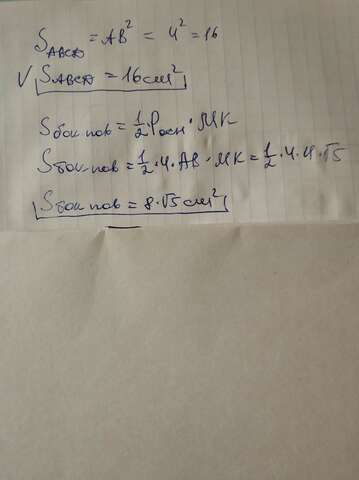 S_ABCD = AB² = 4² = 16
√ S_ABCD = 16 см²
S бок пов = 1/2 · P осн · МК
S бок пов = 1/2 · 4 · AB · МК = 1/2 · 4 · 4 · √5
S бок пов = 8 · √5 см²